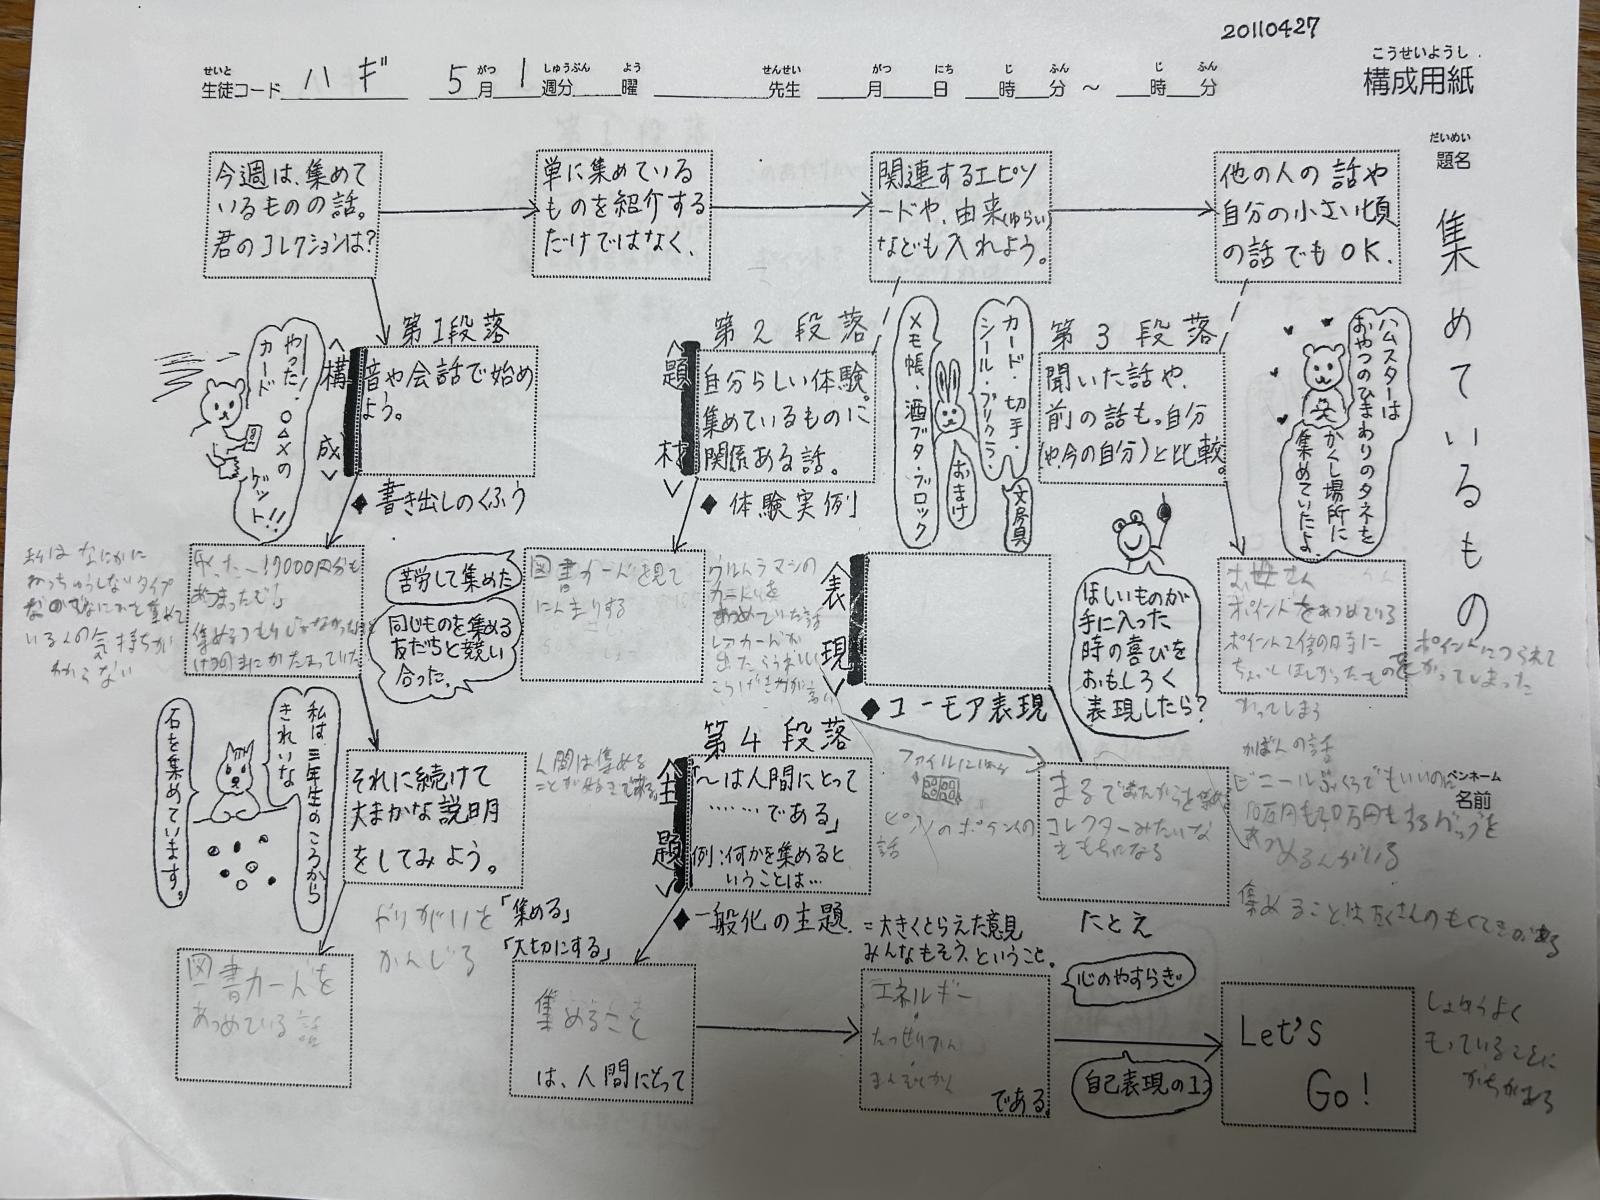 20110427
こうせいようし
構成用紙
せいと
生徒コード ハギ 5月 1週分 曜 先生 月 日 時 分 ~ 時 分
がつ しゅうぶん よう せんせい がつ にち じ ふん じ ふん
だいめい
題名
集めているもの
今週は、集めて
いるものの話。
君のコレクションは?
単に集めている
ものを紹介する
だけではなく、
関連するエピソ
ードや、由来(ゆらい)
なども入れよう。
他の人の話や
自分の小さい頃
の話でもOK.
第1段落
<構成>
音や会話で始め
よう。
◆書き出しのくふう
やった!○△×の
カード
ゲット!!
第2段落
<題材>
自分らしい体験。
集めているものに
関係ある話。
◆体験実例
カード・切手・
シール・プリクラ・
文房具
おまけ
メモ帳・酒ブタ・ブロック
第3段落
聞いた話や、
前の話も。自分
(や、今の自分)と比較。
ハムスターは
おやつのひまわりのタネを
かくし場所に
集めていたよ。
私はなにかに
ねっちゅうしないタイプ
なのでなにかを集めて
いる人の気持ちが
わからない
あつまったぞ
苦労して集めた
同じものを集める
友だちと競い
合った。
図書カードを見て
にんまりする
ウルトラマンの
カードを
あつめていた話
レアカードが
出たらうれしい
こうげき力が高い
<表現>
◆ユーモア表現
ほしいものが
手に入った
時の喜びを
おもしろく
表現したら?
お母さん
ポイントをあつめている
ポイント2倍の日時に
ちょっとほしかったものを
かってしまう
ポイントにつられて
かってしまった
かばんの話
ペンホーム
名前
私は三年生のころから
きれいな
石を集めています。
それに続けて
大まかな説明
をしてみよう。
人間は集める
ことが好きである。
第4段落
<主題>
「~は人間にとって
……である」
例:何かを集めると
いうことは…
◆一般化の主題
=大きくとらえた意見
みんなもそう、ということ。
ファイルにいれる
ピアノのポイントの
話
まるでおたからを集めた
コレクターみたいな
きもちになる
集めることはたくさんのもくてきがある
やりがいを
かんじる
「集める」
「大切にする」
たとえ
図書カードを
あつめている話
集めること
は、人間にとって
エネルギー
たっせいかん
まんぞくかん
である。
心のやすらぎ。
自己表現の1つ
Let's
Go!
しょうりよく
もっていることに
かちがある